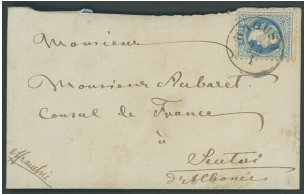 Monsieur
Monsieur Aubaret
Consul de France
à
Scutari
d'Albanie